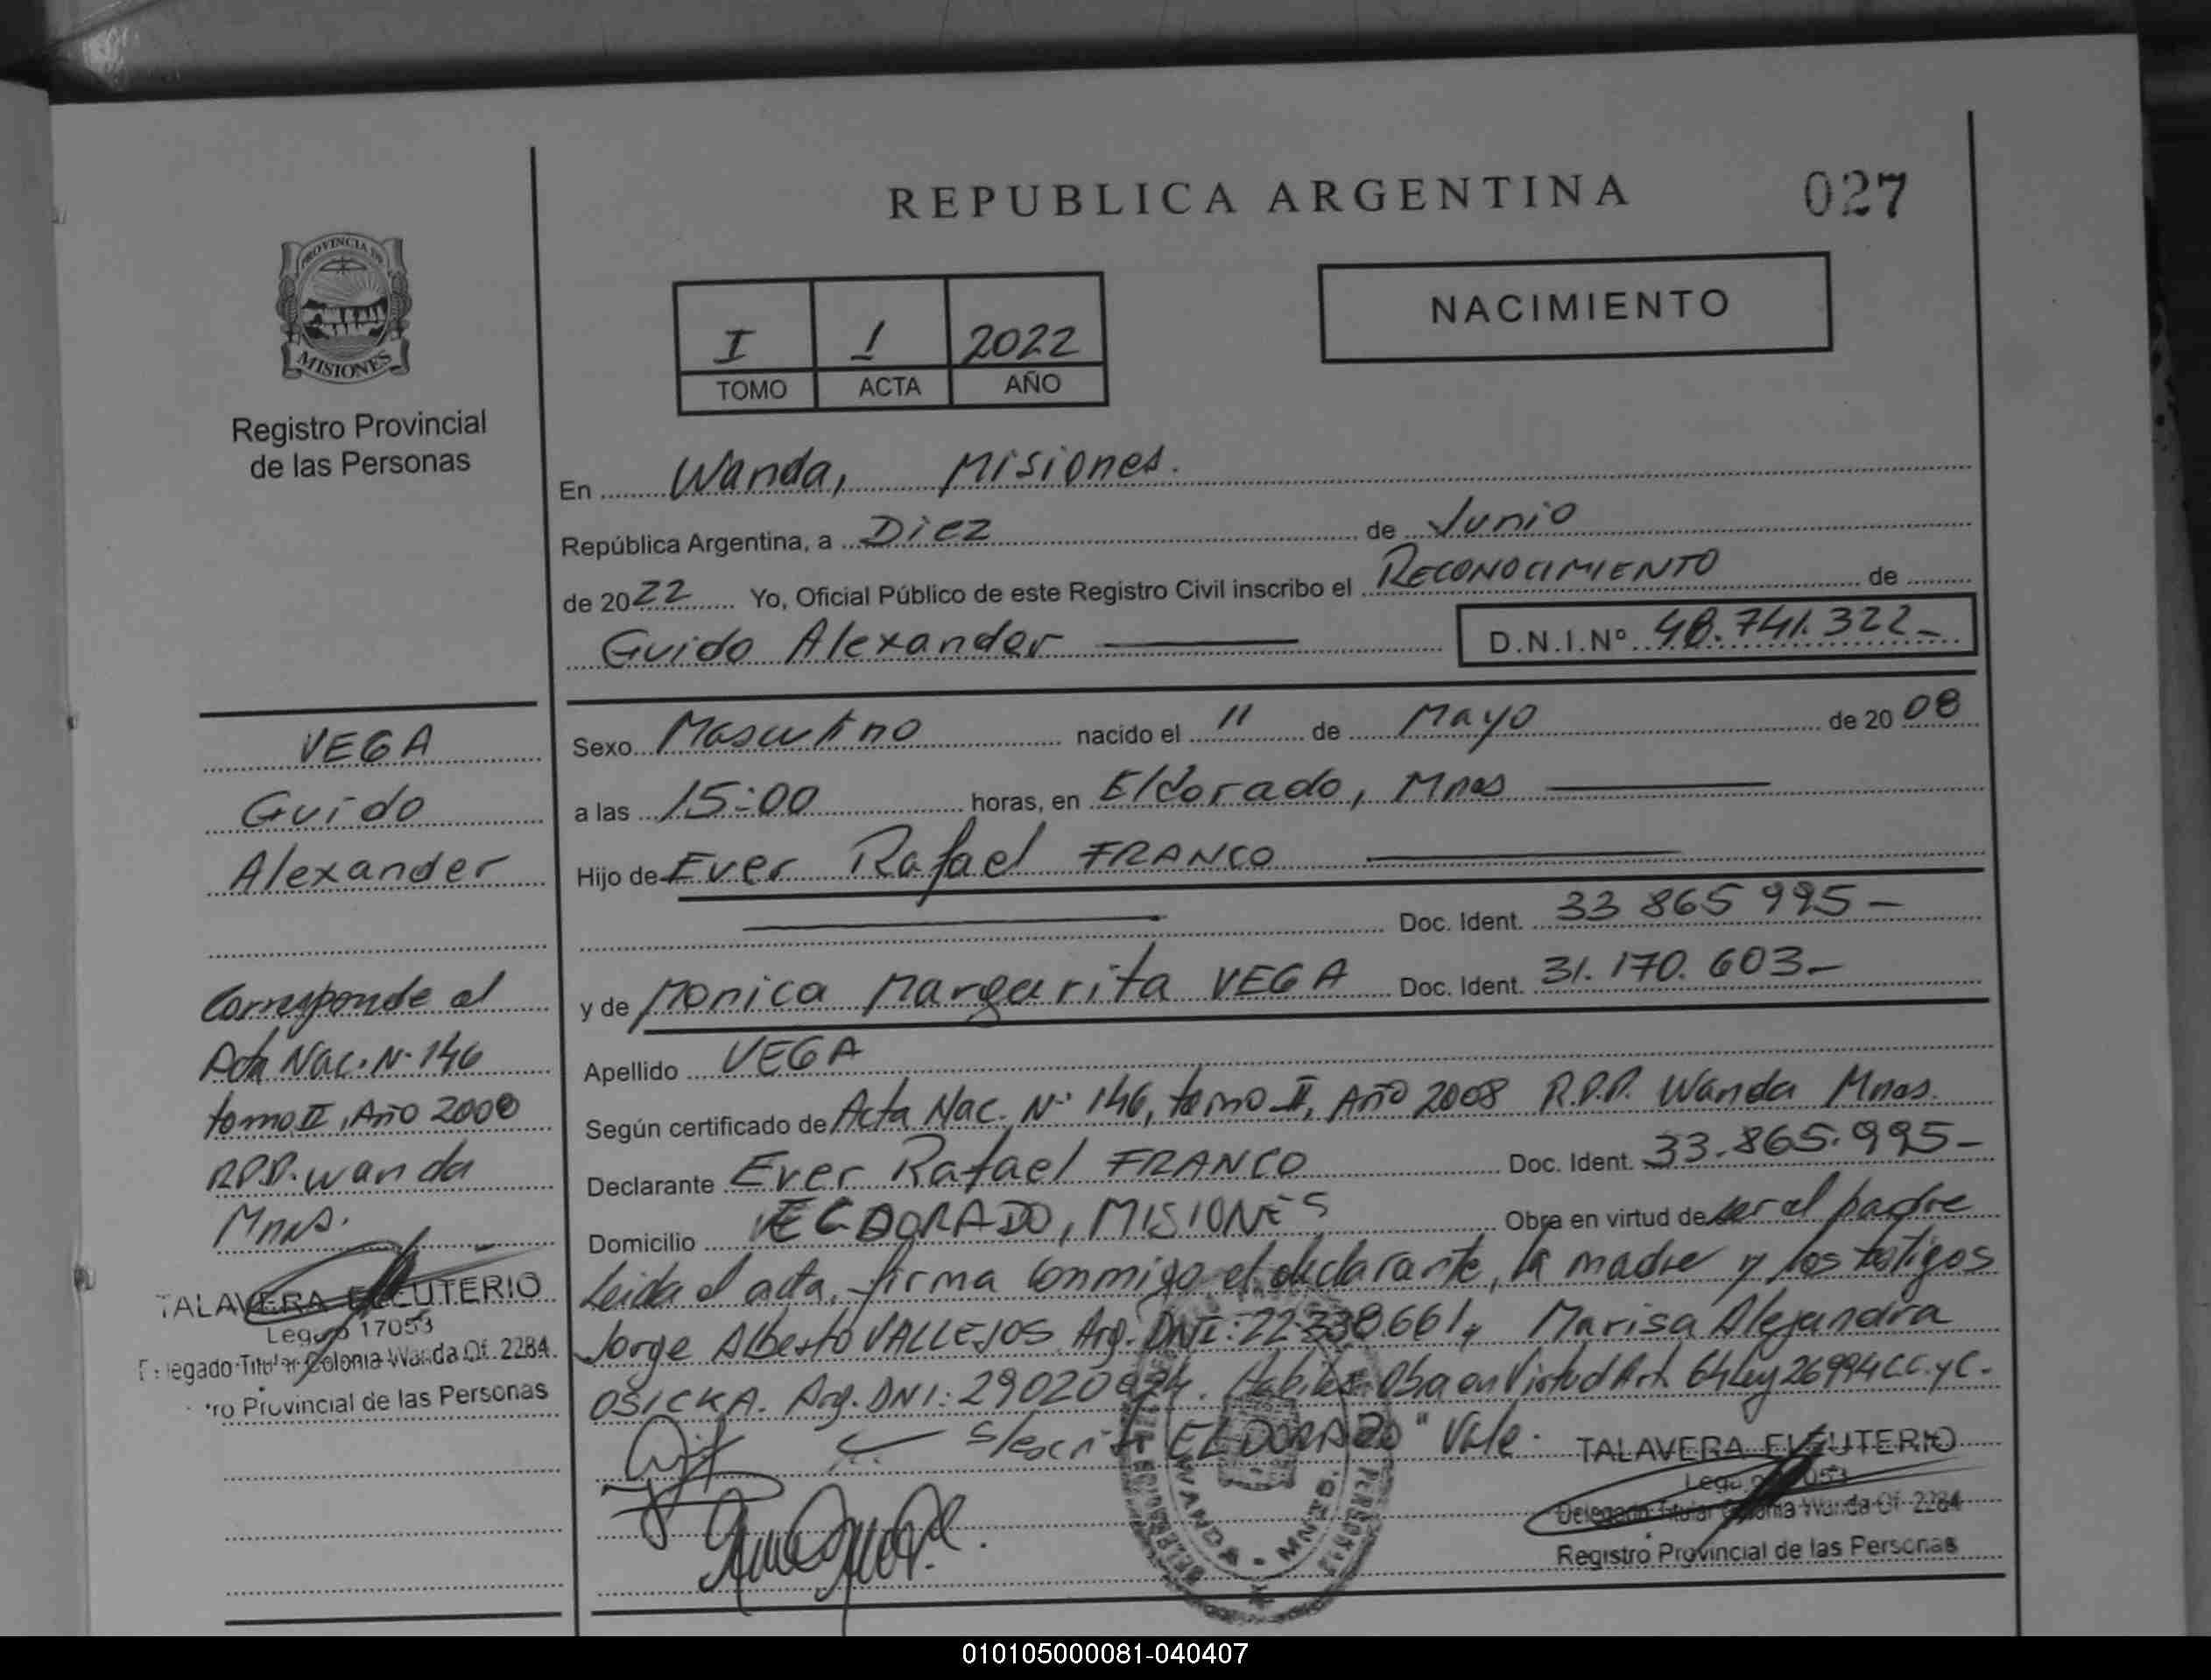 REPUBLICA ARGENTINA
027
PROVINCIA DE
MISIONES
Registro Provincial
de las Personas
I 1 2022
TOMO ACTA AÑO
NACIMIENTO
En Wanda, Misiones.
República Argentina, a Diez de Junio
de 2022 Yo, Oficial Público de este Registro Civil inscribo el RECONOCIMIENTO de
Guido Alexander D.N.I.Nº 48.741.322-
VEGA
Guido
Alexander
Corresponde al
Acta Nac. Nº 146
tomo II, Año 2008
R.P.P. Wanda
Mnes.
TALAVERA ELEUTERIO
Legajo 17053
Delegado Titular Colonia Wanda Of. 2284
Provincial de las Personas
Sexo Masculino nacido el 11 de Mayo de 2008
a las 15:00 horas, en Eldorado, Mnes
Hijo de Ever Rafael FRANCO
Doc. Ident. 33 865 995-
y de Monica Margarita VEGA Doc. Ident. 31.170.603-
Apellido VEGA
Según certificado de Acta Nac. Nº 146, tomo II, Año 2008 R.P.P. Wanda Mnes.
Declarante Ever Rafael FRANCO Doc. Ident. 33.865.995-
Domicilio ELDORADO, MISIONES Obra en virtud de ser el padre
Leida el acta, firma conmigo el declarante, la madre y los testigos
Jorge Alberto VALLEJOS Arg. DNI: 22338661, Marisa Alejandra
OSICKA. Arg. DNI: Habiles. Obra en Virtud Art. 64 Ley 26994 C.C. y C.-
ELDORADO" Vale.
TALAVERA ELEUTERIO
Legajo 17053
Delegado Titular Colonia Wanda Of. 2284
Registro Provincial de las Personas
WANDA - MNES.
010105000081-040407